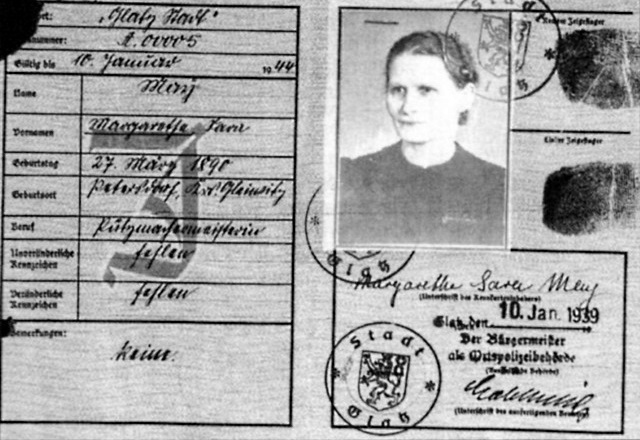 „Glatz Stadt"
A.00005
Gültig bis 10. Januar 1944
Name May
Vornamen Margarethe Sara
Geburtstag 27. März 1890
Geburtsort Petersdorf, Krs. Gleiwitz
Beruf Putzmachermeisterin
Unveränderliche Kennzeichen fehlen
Veränderliche Kennzeichen fehlen
Bemerkungen:
Keine.
J
Stadt
Glatz
Zeigefinger
Linker Zeigefinger
Margarethe Sara May
(Unterschrift des Kennkarteninhabers)
Glatz, den 10. Jan. 1939
Der Bürgermeister
als Ortspolizeibehörde
(Ausstellende Behörde)
Stadt
Glatz